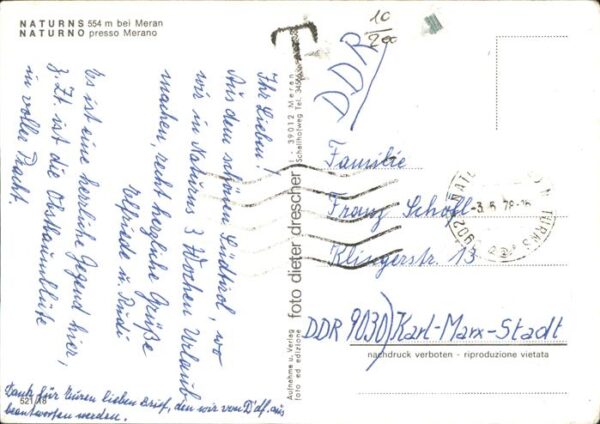 NATURNS 554 m bei Meran
NATURNO presso Merano
T
10
200
DDR
Ihr Lieben!
Aus dem schönen Südtirol, wo
wir in Naturns 3 Wochen Urlaub
machen, recht herzliche Grüße
Elfriede u. Rudi
Es ist eine herrliche Gegend hier,
z. Zt. ist die Obstbaumblüte
in voller Pracht.
Dank für Euren lieben Brief, den wir von D'df. aus
beantworten werden.
521/18
Aufnahme u. Verlag
foto ed edizione
foto dieter drescher
39012 Meran
Schallhofweg Tel.
Familie
Franz Schöfl
Klingerstr. 13
DDR 9030 Karl-Marx-Stadt
nachdruck verboten - riproduzione vietata